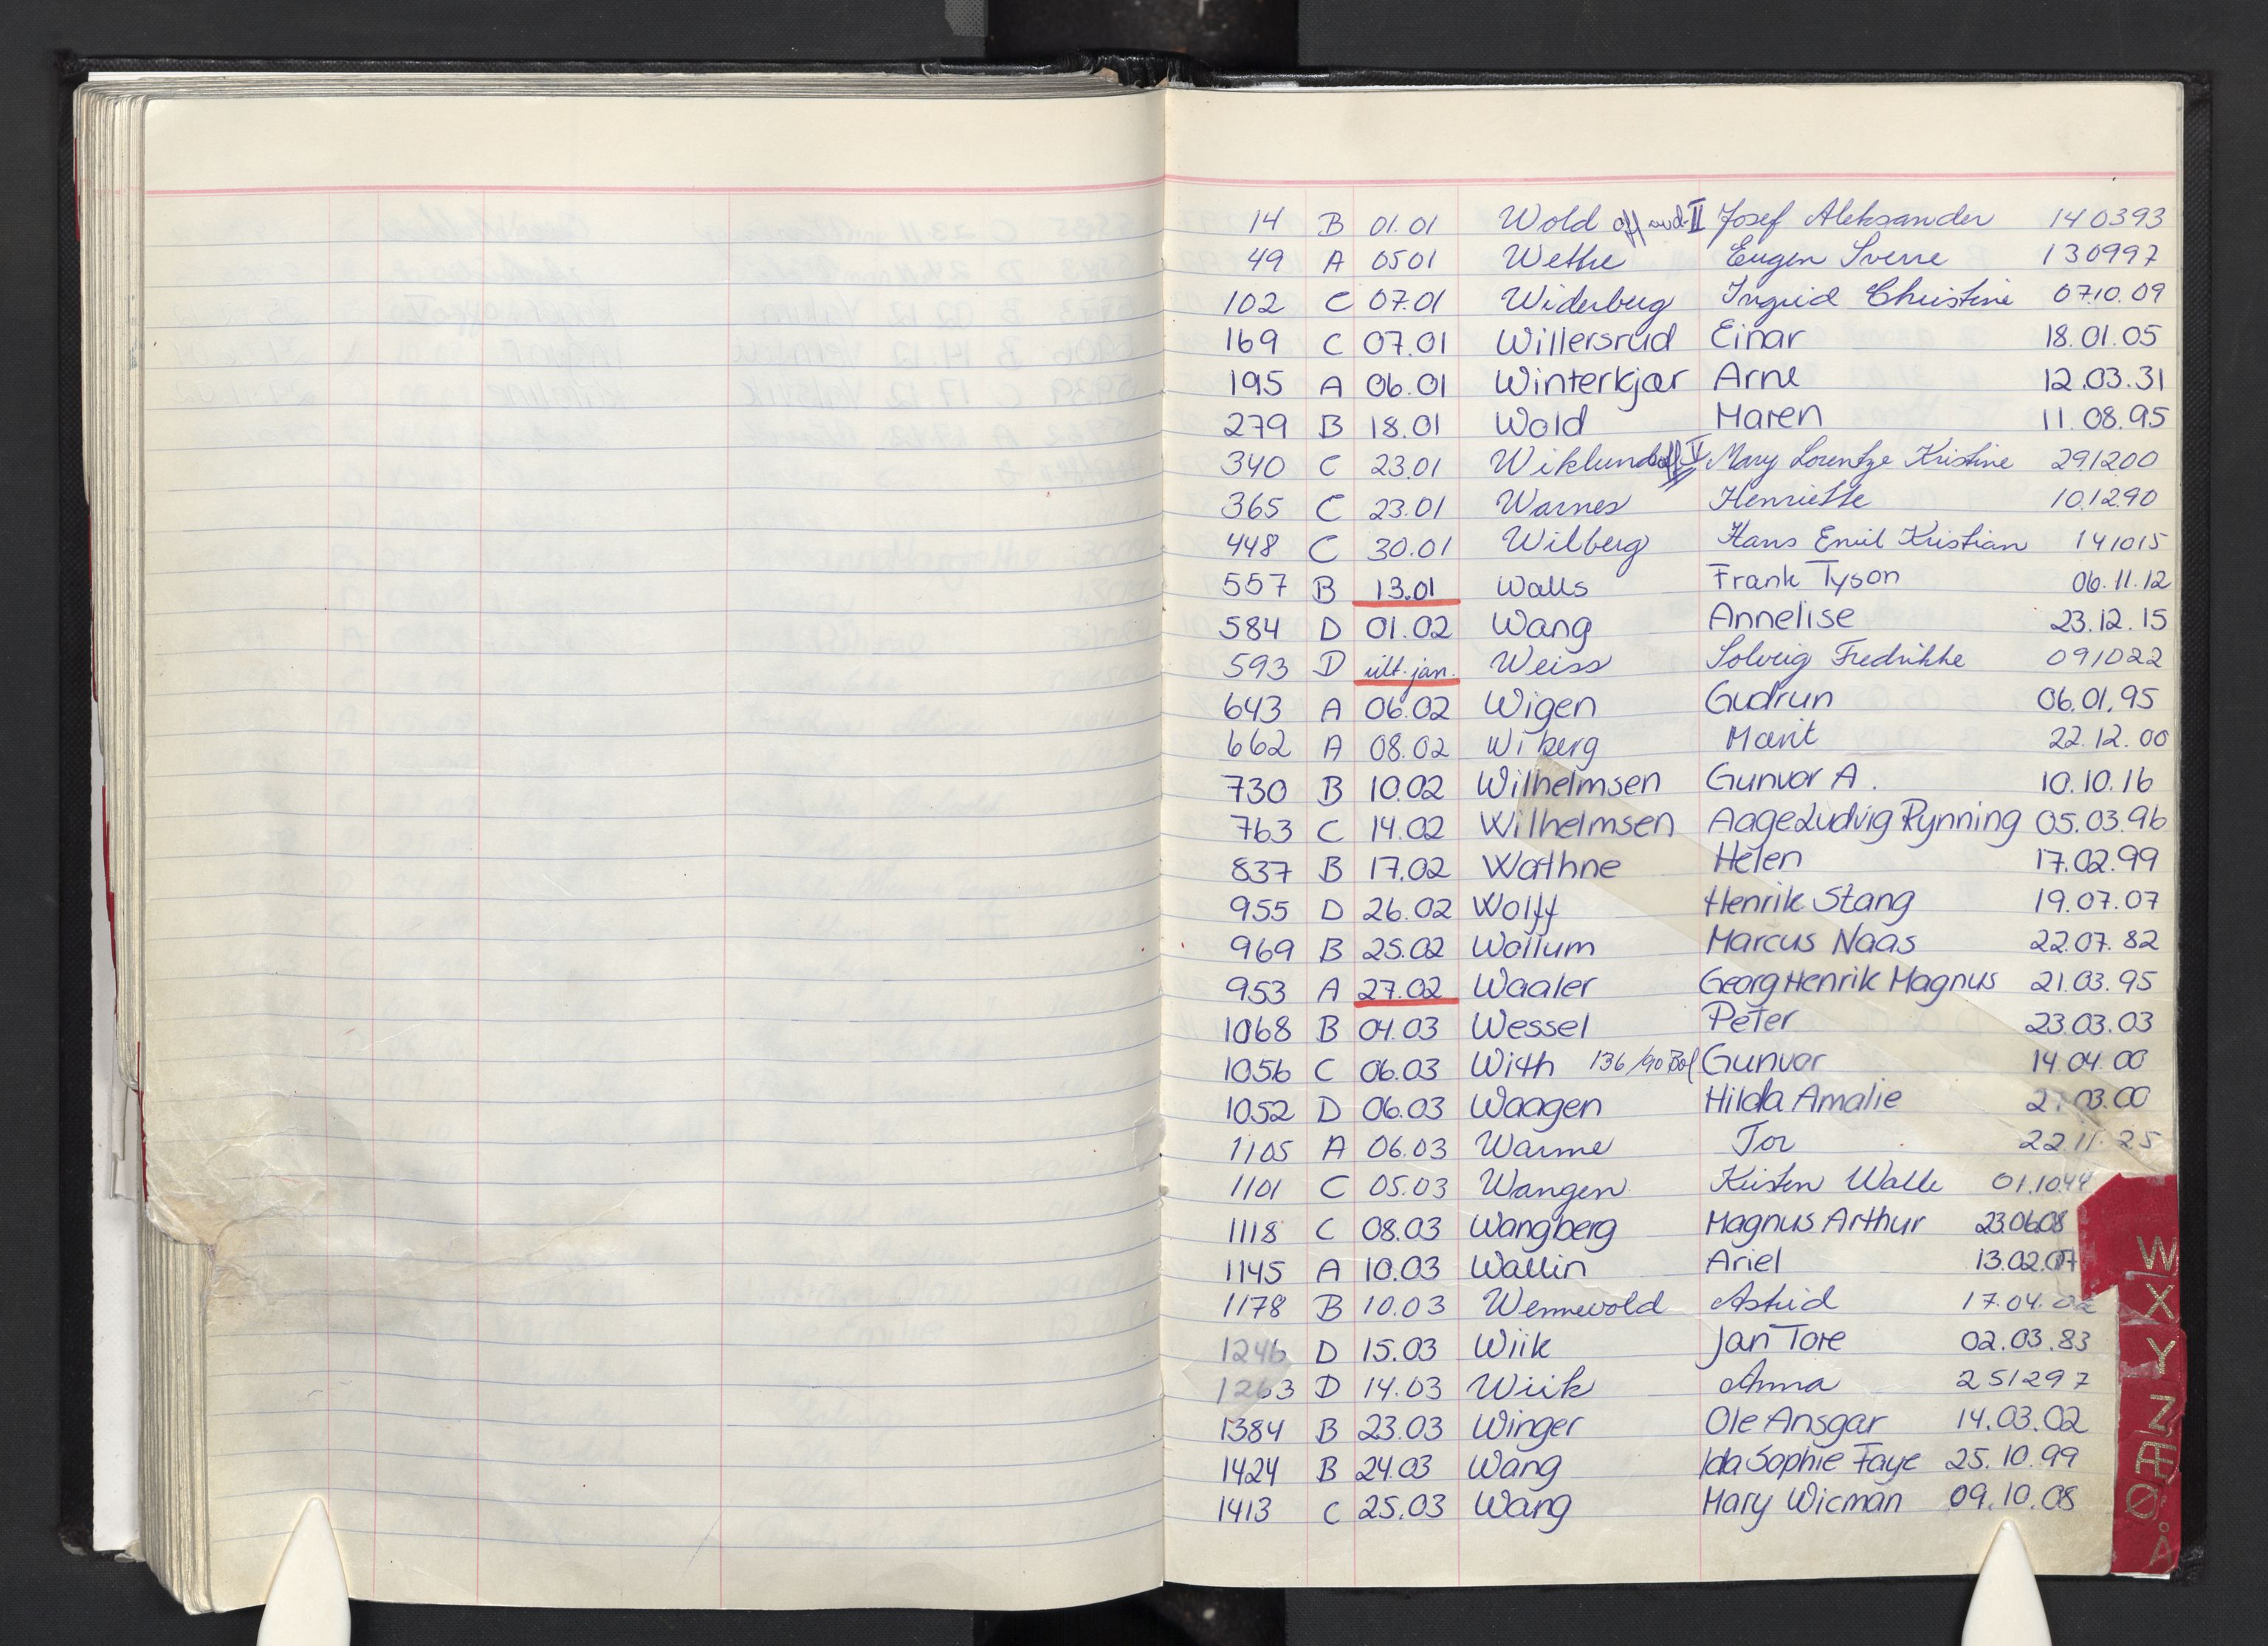 14 B 01.01 Wold off avd. II Josef Aleksander 140393
49 A 0501 Wethe Eugen Sverre 130997
102 C 07.01 Widerberg Ingrid Christine 07.10.09
169 C 07.01 Willersrud Einar 18.01.05
195 A 06.01 Winterkjær Arne 12.03.31
279 B 18.01 Wold Maren 11.08.95
340 C 23.01 Wiklund off V Mary Lorentze Kristine 291200
365 C 23.01 Warnes Henriette 101290
448 C 30.01 Wilberg Hans Emil Kristian 141015
557 B 13.01 Walls Frank Tyson 06.11.12
584 D 01.02 Wang Annelise 23.12.15
593 D ult. jan. Weiss Solveig Fredrikke 091022
643 A 06.02 Wigen Gudrun 06.01.95
662 A 08.02 Wiberg Marit 22.12.00
730 B 10.02 Wilhelmsen Gunvor A. 10.10.16
763 C 14.02 Wilhelmsen Aage Ludvig Rynning 05.03.96
837 B 17.02 Wathne Helen 17.02.99
955 D 26.02 Wolff Henrik Stang 19.07.07
969 B 25.02 Wollum Marcus Naas 22.07.82
953 A 27.02 Waaler Georg Henrik Magnus 21.03.95
1068 B 04.03 Wessel Peter 23.03.03
1056 C 06.03 With 136/90 Bol Gunvor 14.04.00
1052 D 06.03 Waagen Hilda Amalie 03.00
1105 A 06.03 Warme Tor 22.11.25
1101 C 05.03 Wangen Kirsten Walle 01.10.44
1118 C 08.03 Wangberg Magnus Arthur 23.06.08
1145 A 10.03 Wallin Ariel 13.02.07
1178 B 10.03 Wennevold Astrid 17.04.02
1246 D 15.03 Wiik Jan Tore 02.03.83
1263 D 14.03 Wiik Anna 251297
1384 B 23.03 Winger Ole Ansgar 14.03.02
1424 B 24.03 Wang Ida Sophie Faye 25.10.99
1413 C 25.03 Wang Mary Wicman 09.10.08
W
X
Y
Z
Æ
Ø
Å